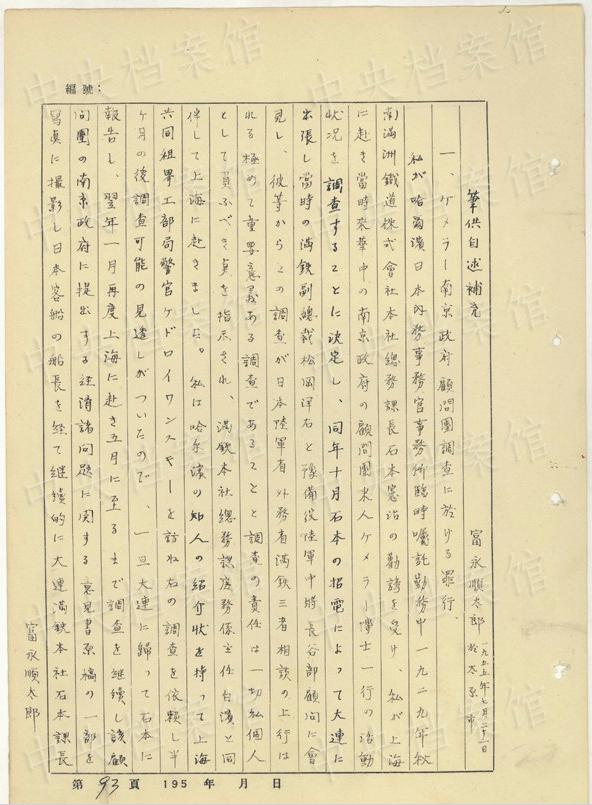 編號：
筆供自述補充
富永順太郎 一九五五年七月二十一日 於太原市
一、ケメラー南京政府顧問團調査に於ける罪行．
私が哈爾濱日本内務事務官事務所臨時囑託勤務中一九二九年秋
南満洲鐵道株式會社本社總務課長石本憲治の勸誘を受け、私が上海
に赴き當時來華中の南京政府の顧問團米人ケメラー博士一行の活動
状況を調査することに決定し、同年十月石本の招電によって大連に
出張し當時の満鉄副總裁松岡洋右と豫備役陸軍中將長谷部顧問に會
見し、彼等からこの調査が日本陸軍省外務省満鉄三者相談の上行は
れる極めて重要意義ある調査であることと調査の責任は一切私個人
として負ふべき点を指示され、満鉄本社總務課庶務係主任白濱と同
伴して上海に赴きました。私は哈尔濱の知人の紹介状を持って上海
共同租界工部局警官ケドロイワンスキーを訪ね右の調査を依頼し半
ヶ月の後調査可能の見透しがついたので、一旦大連に歸って石本に
報告し、翌年一月再度上海に赴き五月に至るまで調査を継続し該顧
問團の南京政府に提出する経濟諸問題に関する意見書原稿の一部を
寫真に撮影し日本客船の船長を経て継続的に大連満鉄本社石本課長
富永順太郎
第93頁 195 年 月 日
中央档案馆